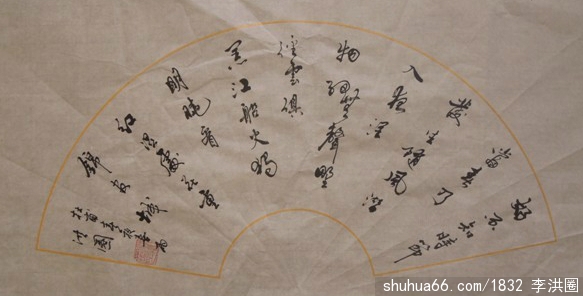 好雨知時節
當春乃
發生隨風潛
入夜潤
物細無聲野
徑雲俱
黑江船火獨
明曉看
紅濕處花重
錦官城
杜甫春夜喜雨
洪圈
shuhua66.com/1832 李洪圈